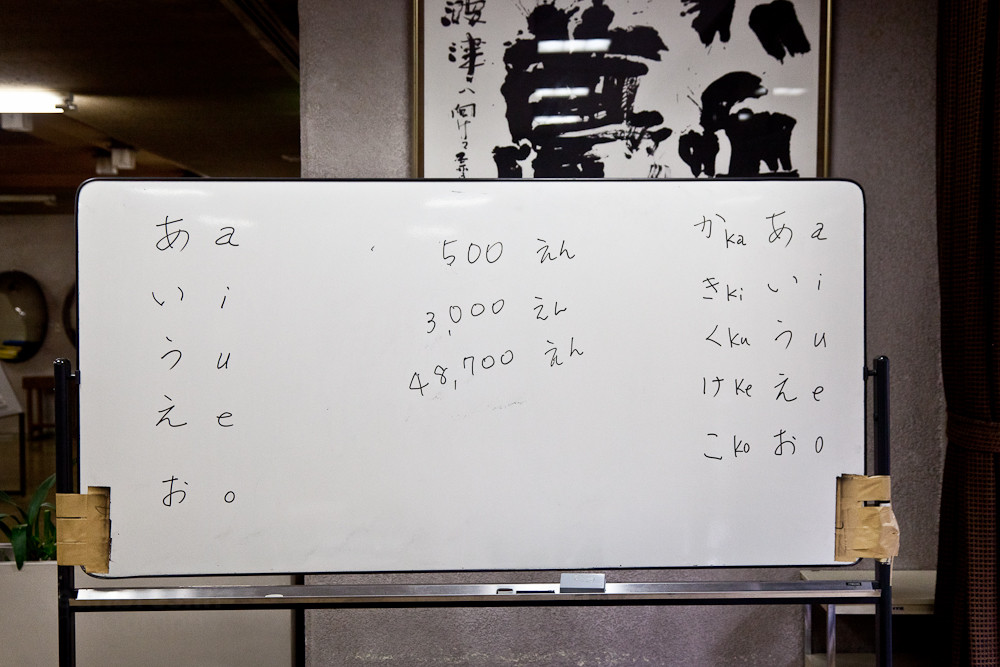 波津
あ a
い i
う u
え e
お o
500 えん
3,000 えん
48,700 えん
か ka あ a
き ki い i
く ku う u
け ke え e
こ ko お o